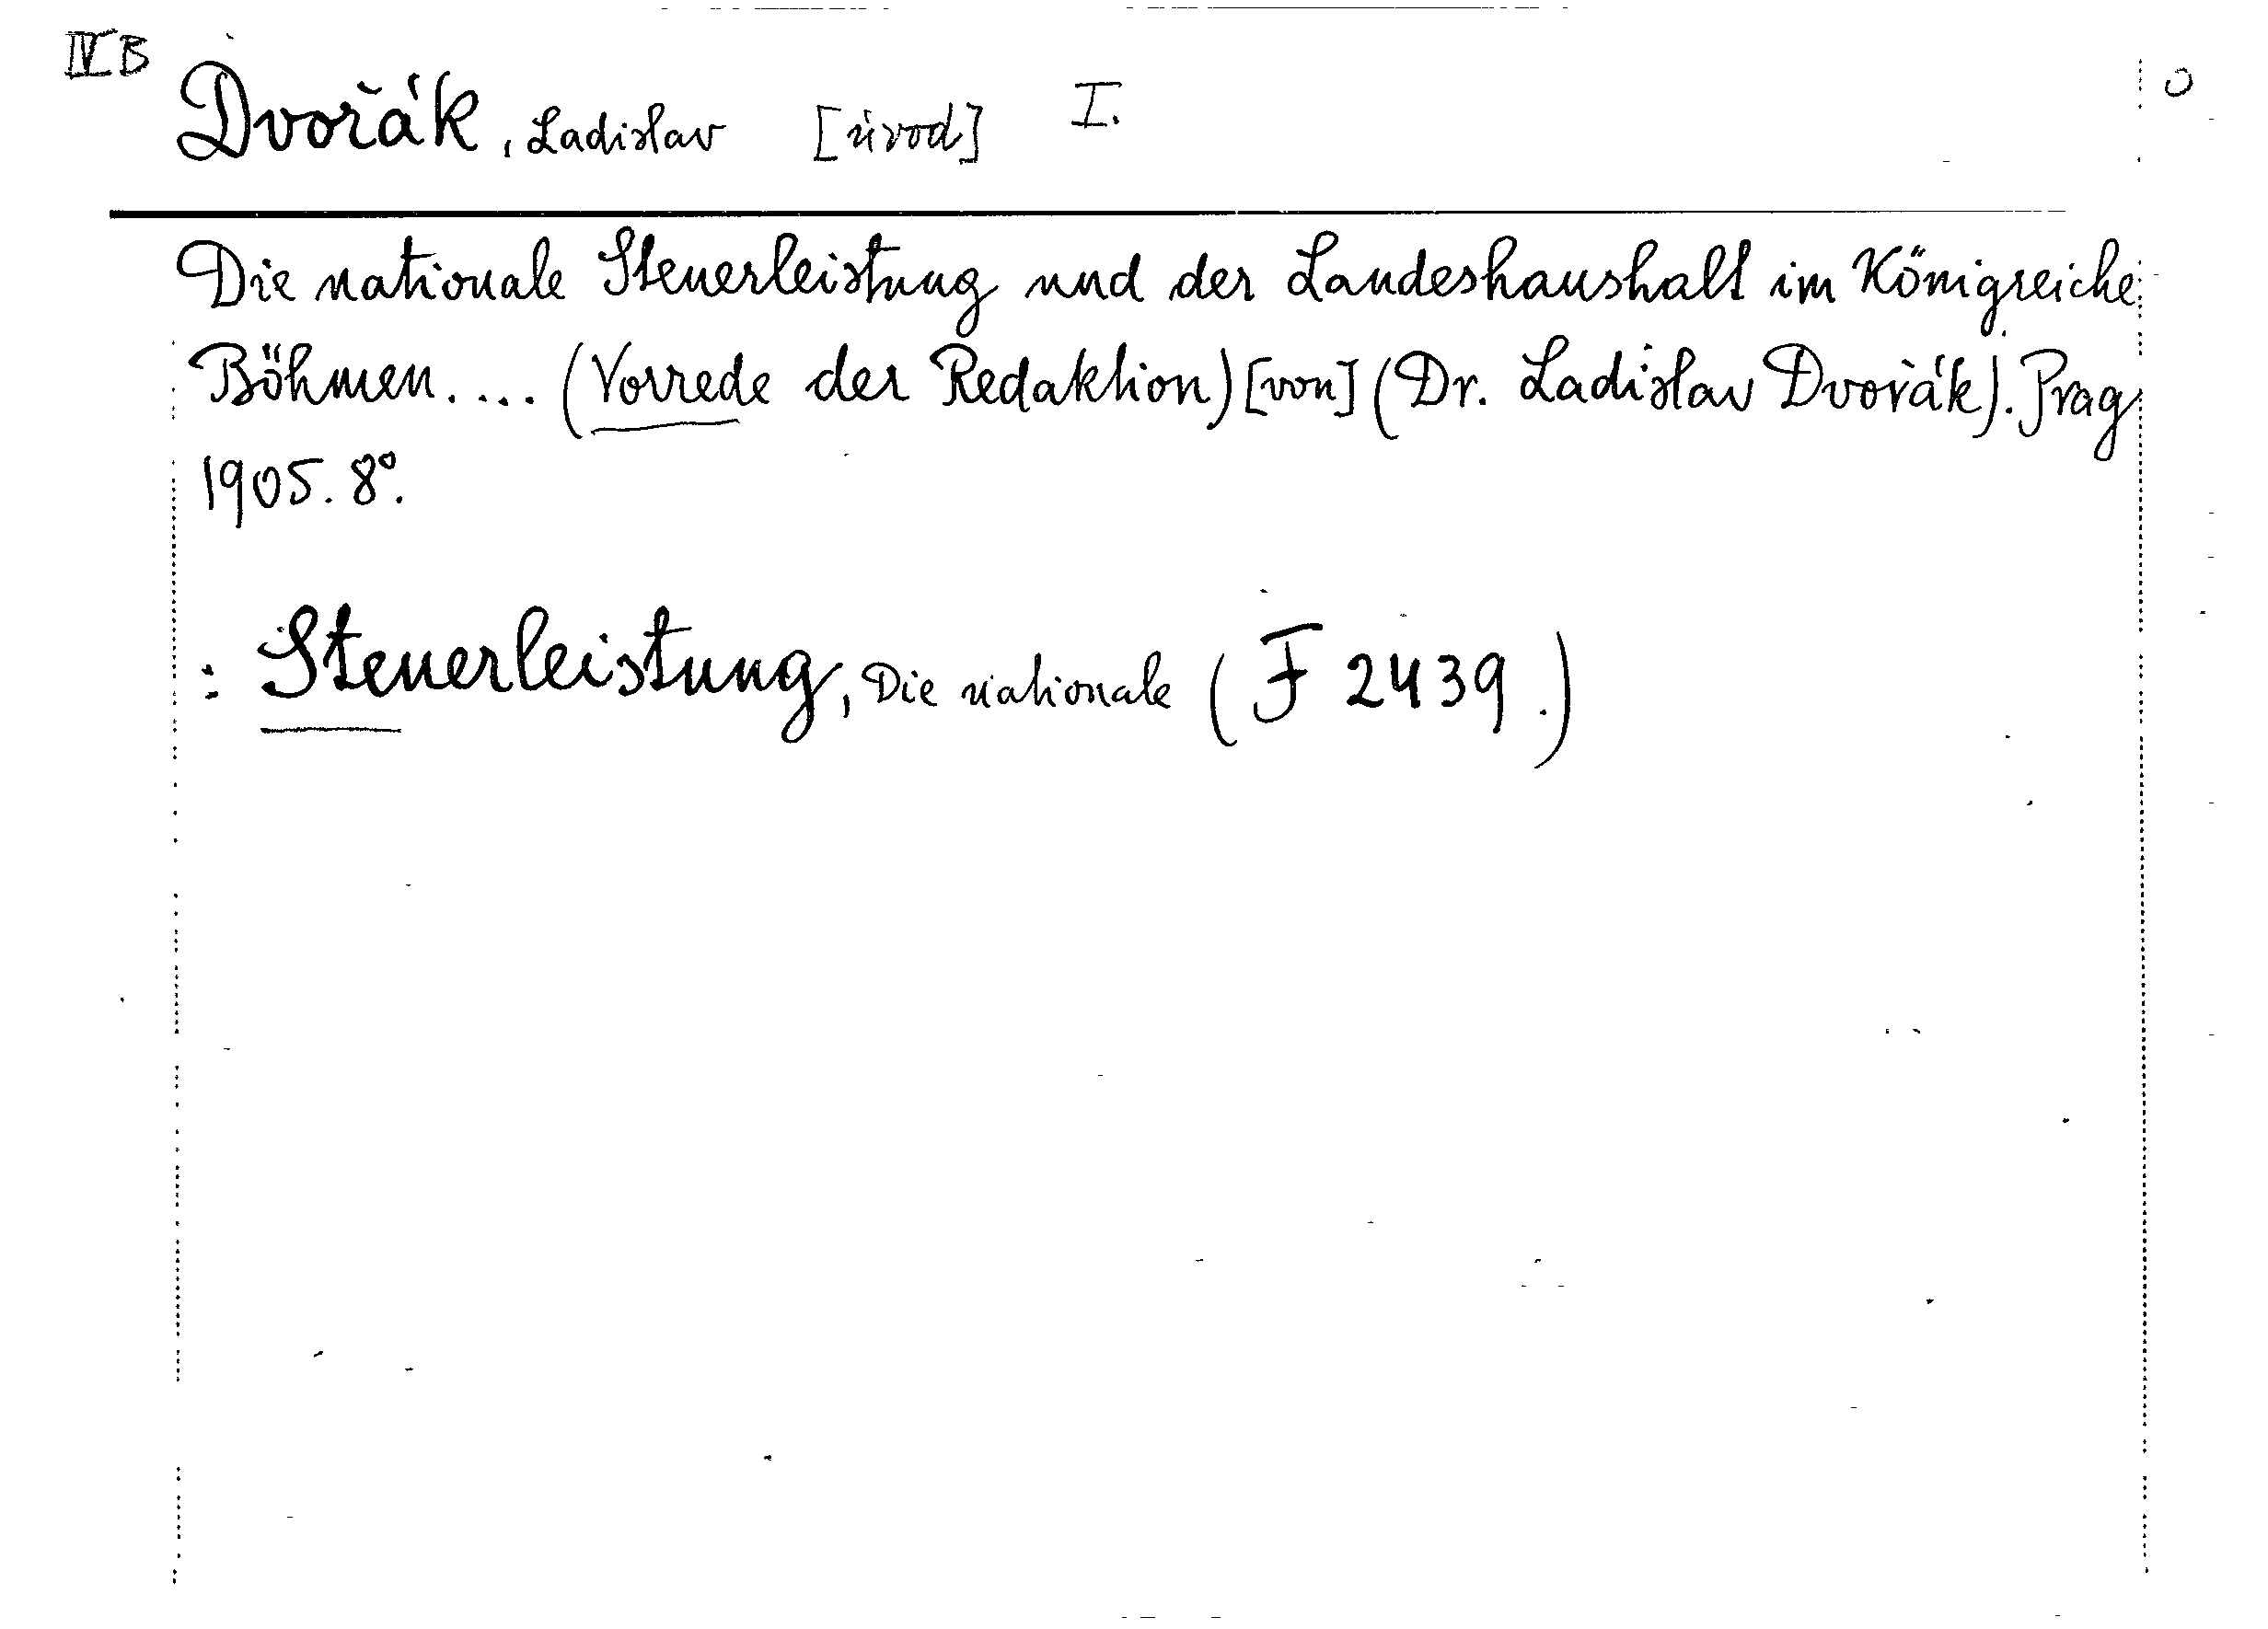 IV B
Dvořák, Ladislav [úvod] I.
Die nationale Steuerleistung und der Landeshaushalt im Königreiche
Böhmen.... (Vorrede der Redaktion) [von] (Dr. Ladislav Dvořák). Prag
1905. 8°.
: Steuerleistung, Die nationale (F 2439.)